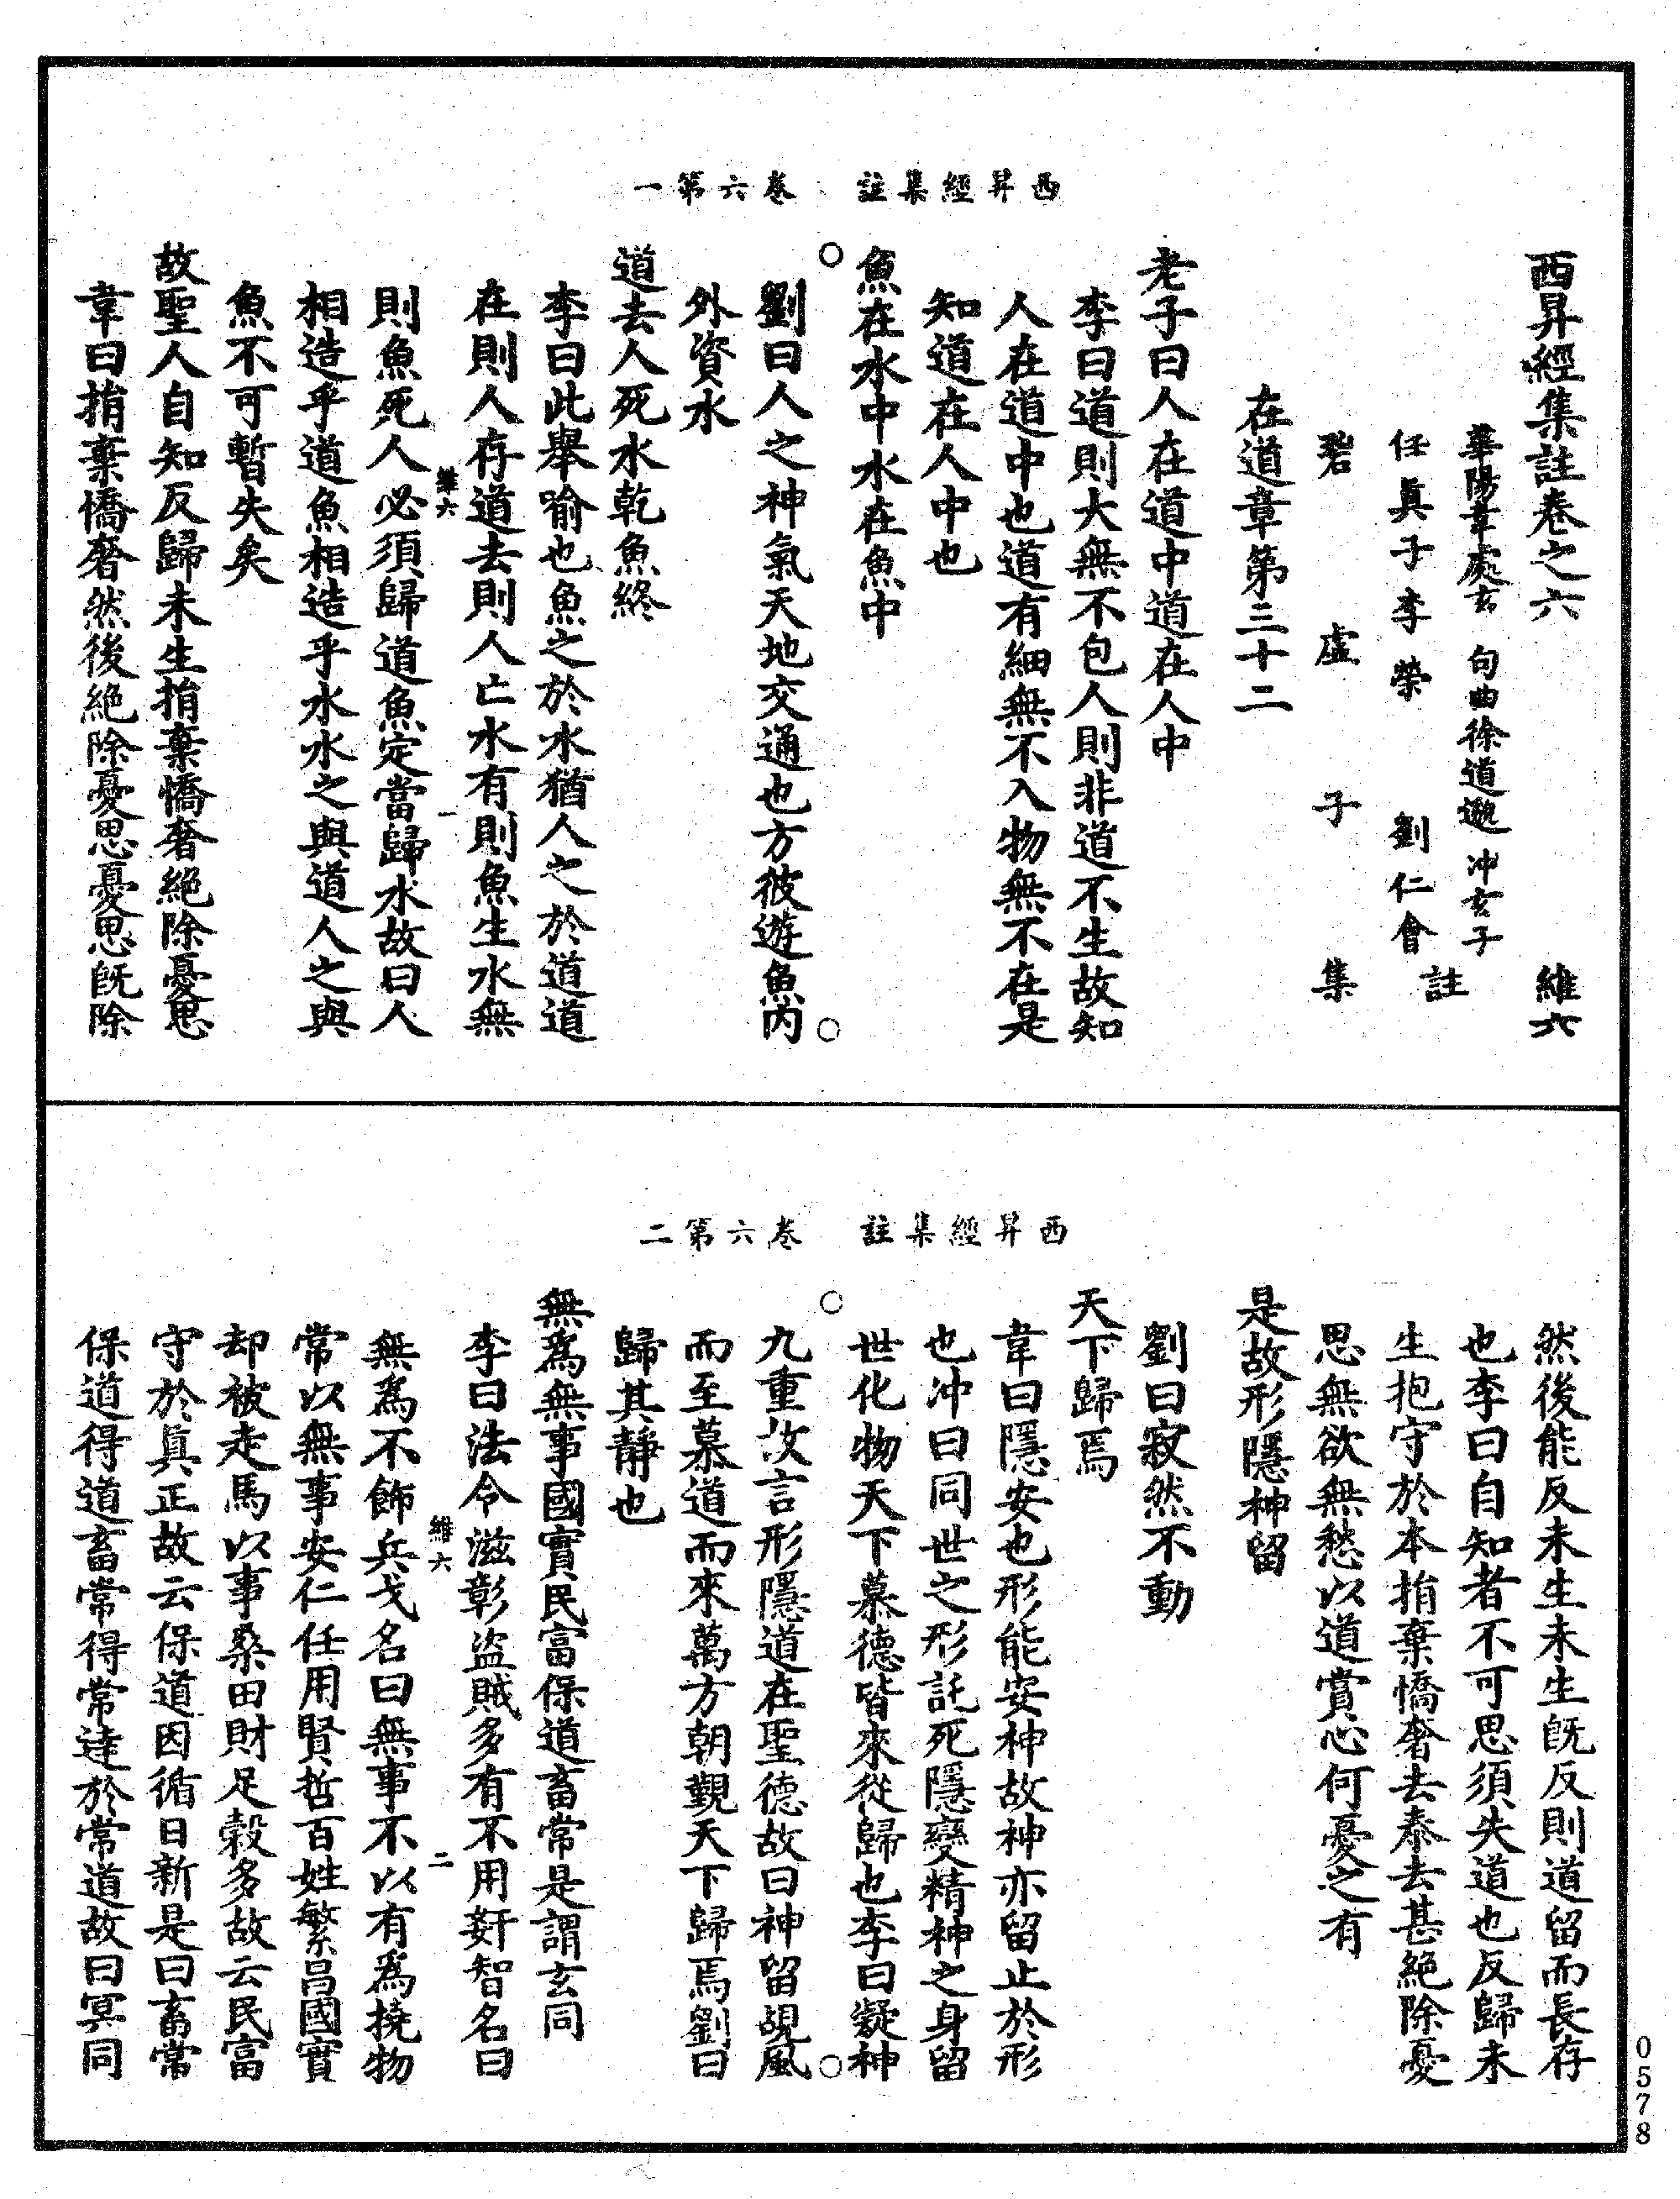 西昇經集註　卷六第一
西昇經集註卷之六　維六
華陽韋處玄　句曲徐道邈　冲玄子
任眞子李榮　劉仁會　註
碧虛子集
在道章第三十二
老子曰人在道中道在人中
李曰道則大無不包人則非道不生故知
人在道中也道有細無不入物無不在是
知道在人中也
魚在水中水在魚中
劉曰人之神氣天地交通也方彼遊魚内
外資水
道去人死水乾魚終
李曰此舉喻也魚之於水猶人之於道道
在則人存道去則人亡水有則魚生水無
維六　一
則魚死人必須歸道魚定當歸水故曰人
相造乎道魚相造乎水水之與道人之與
魚不可暫失矣
故聖人自知反歸未生捐棄憍奢絕除憂思
韋曰捐棄憍奢然後絕除憂思憂思既除
西昇經集註　卷六第二
然後能反未生未生既反則道留而長存
也李曰自知者不可思須失道也反歸未
生抱守於本捐棄憍奢去泰去甚絕除憂
思無欲無愁以道賞心何憂之有
是故形隱神留
劉曰寂然不動
天下歸焉
韋曰隱安也形能安神故神亦留止於形
也冲曰同世之形託死隱變精神之身留
世化物天下慕德皆來從歸也李曰凝神
九重故言形隱道在聖德故曰神留覩風
而至慕道而來萬方朝覲天下歸焉劉曰
歸其靜也
無為無事國實民富保道畜常是謂玄同
李曰法令滋彰盜賊多有不用姧智名曰
維六　二
無為不飾兵戈名曰無事不以有為撓物
常以無事安仁任用賢哲百姓繁昌國實
却被走馬以事桑田財足穀多故云民富
守於眞正故云保道因循日新是曰畜常
保道得道畜常得常達於常道故曰冥同
0578